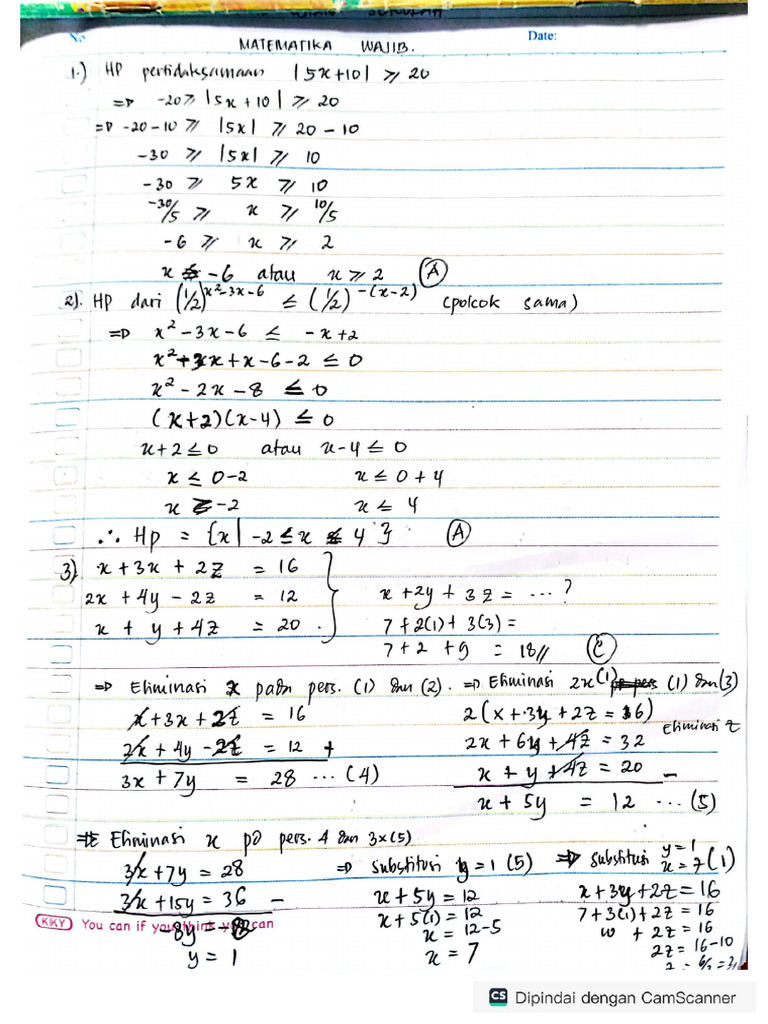 No
Date:
MATEMATIKA WAJIB.
1.) HP pertidaksamaan |5x+10| ≥ 20
=> -20 ≥ |5x+10| ≥ 20
=> -20-10 ≥ |5x| ≥ 20-10
-30 ≥ |5x| ≥ 10
-30 ≥ 5x ≥ 10
-30/5 ≥ x ≥ 10/5
-6 ≥ x ≥ 2
x ≤ -6 atau x ≥ 2 (A)
2). HP dari (1/2)^x²-3x-6 ≤ (1/2)^-(x-2) (polcok sama)
=> x²-3x-6 ≤ -x+2
x²-3x+x-6-2 ≤ 0
x²-2x-8 ≤ 0
(x+2)(x-4) ≤ 0
x+2≤0 atau x-4 ≤ 0
x ≤ 0-2 x ≤ 0+4
x ≥ -2 x ≤ 4
∴ Hp = {x| -2 ≤ x ≤ 4} (A)
3) x + 3x + 2z = 16
2x + 4y - 2z = 12
x + y + 4z = 20
x + 2y + 3z = ... ?
7 + 2(1) + 3(3) =
7 + 2 + 9 = 18// (C)
=> Eliminasi z pada pers. (1) dan (2).
x+3x+2z = 16
2x + 4y - 2z = 12 +
3x + 7y = 28 ... (4)
=> Eliminasi 2x(1) (1) dan (3)
2(x+3y+2z = 16)
Eliminasi z
2x + 6y + 4z = 32
x + y + 4z = 20 -
x + 5y = 12 ... (5)
=> Eliminasi x pd pers. 4 dan 3x(5)
3x+7y = 28
3x+15y = 36 -
-8y = -8
y = 1
=> Substitusi y=1 (5)
x+5y = 12
x+5(1) = 12
x = 12-5
x = 7
=> Substitusi y=1 x=7 (1)
x+3y+2z = 16
7+3(1)+2z = 16
10 + 2z = 16
2z = 16-10
z = 6/2 = 3//
KIKY You can if you think you can
CS Dipindai dengan CamScanner